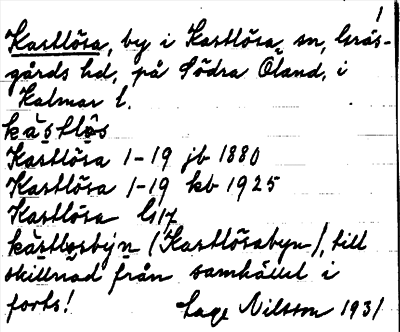 1
Kastlösa, by i Kastlösa sn, Gräs-
gårds hd, på Södra Öland, i
Kalmar l.
kàstlo̊s
Kastlösa 1-19 jb 1880
Kastlösa 1-19 kb 1925
Kastlösa G17
kàstlosbýn (Kastlösabyn), till
skillnad från samhället i
forts!
Lage Nilsson 1931